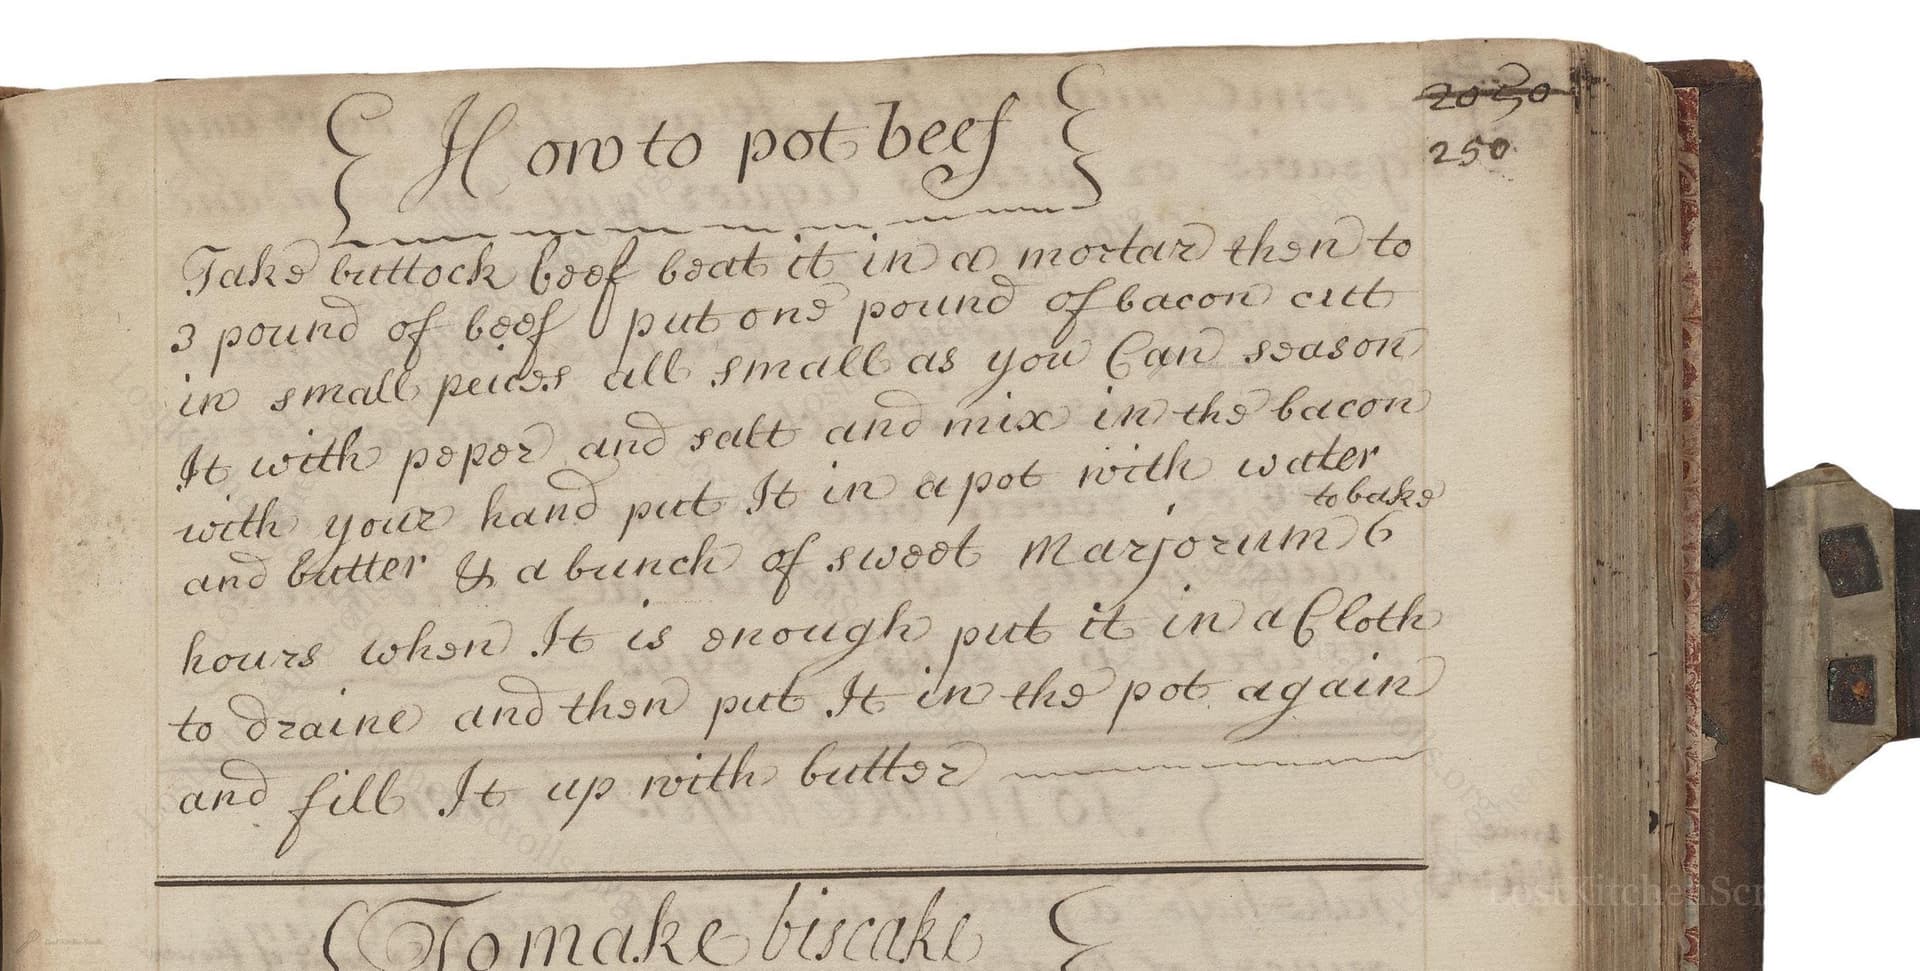 How to pot beef
2050
250
Take buttock beef beat it in a mortar then to
3 pound of beef put one pound of bacon cutt
in small peices all small as you Can season
It with peper and salt and mix in the bacon
with your hand put It in a pot with water
to bake
and butter & a bunch of sweet Marjorum 6
hours when It is enough put it in a Cloth
to draine and then put It in the pot again
and fill It up with butter
To make biscake
LostKitchenScr